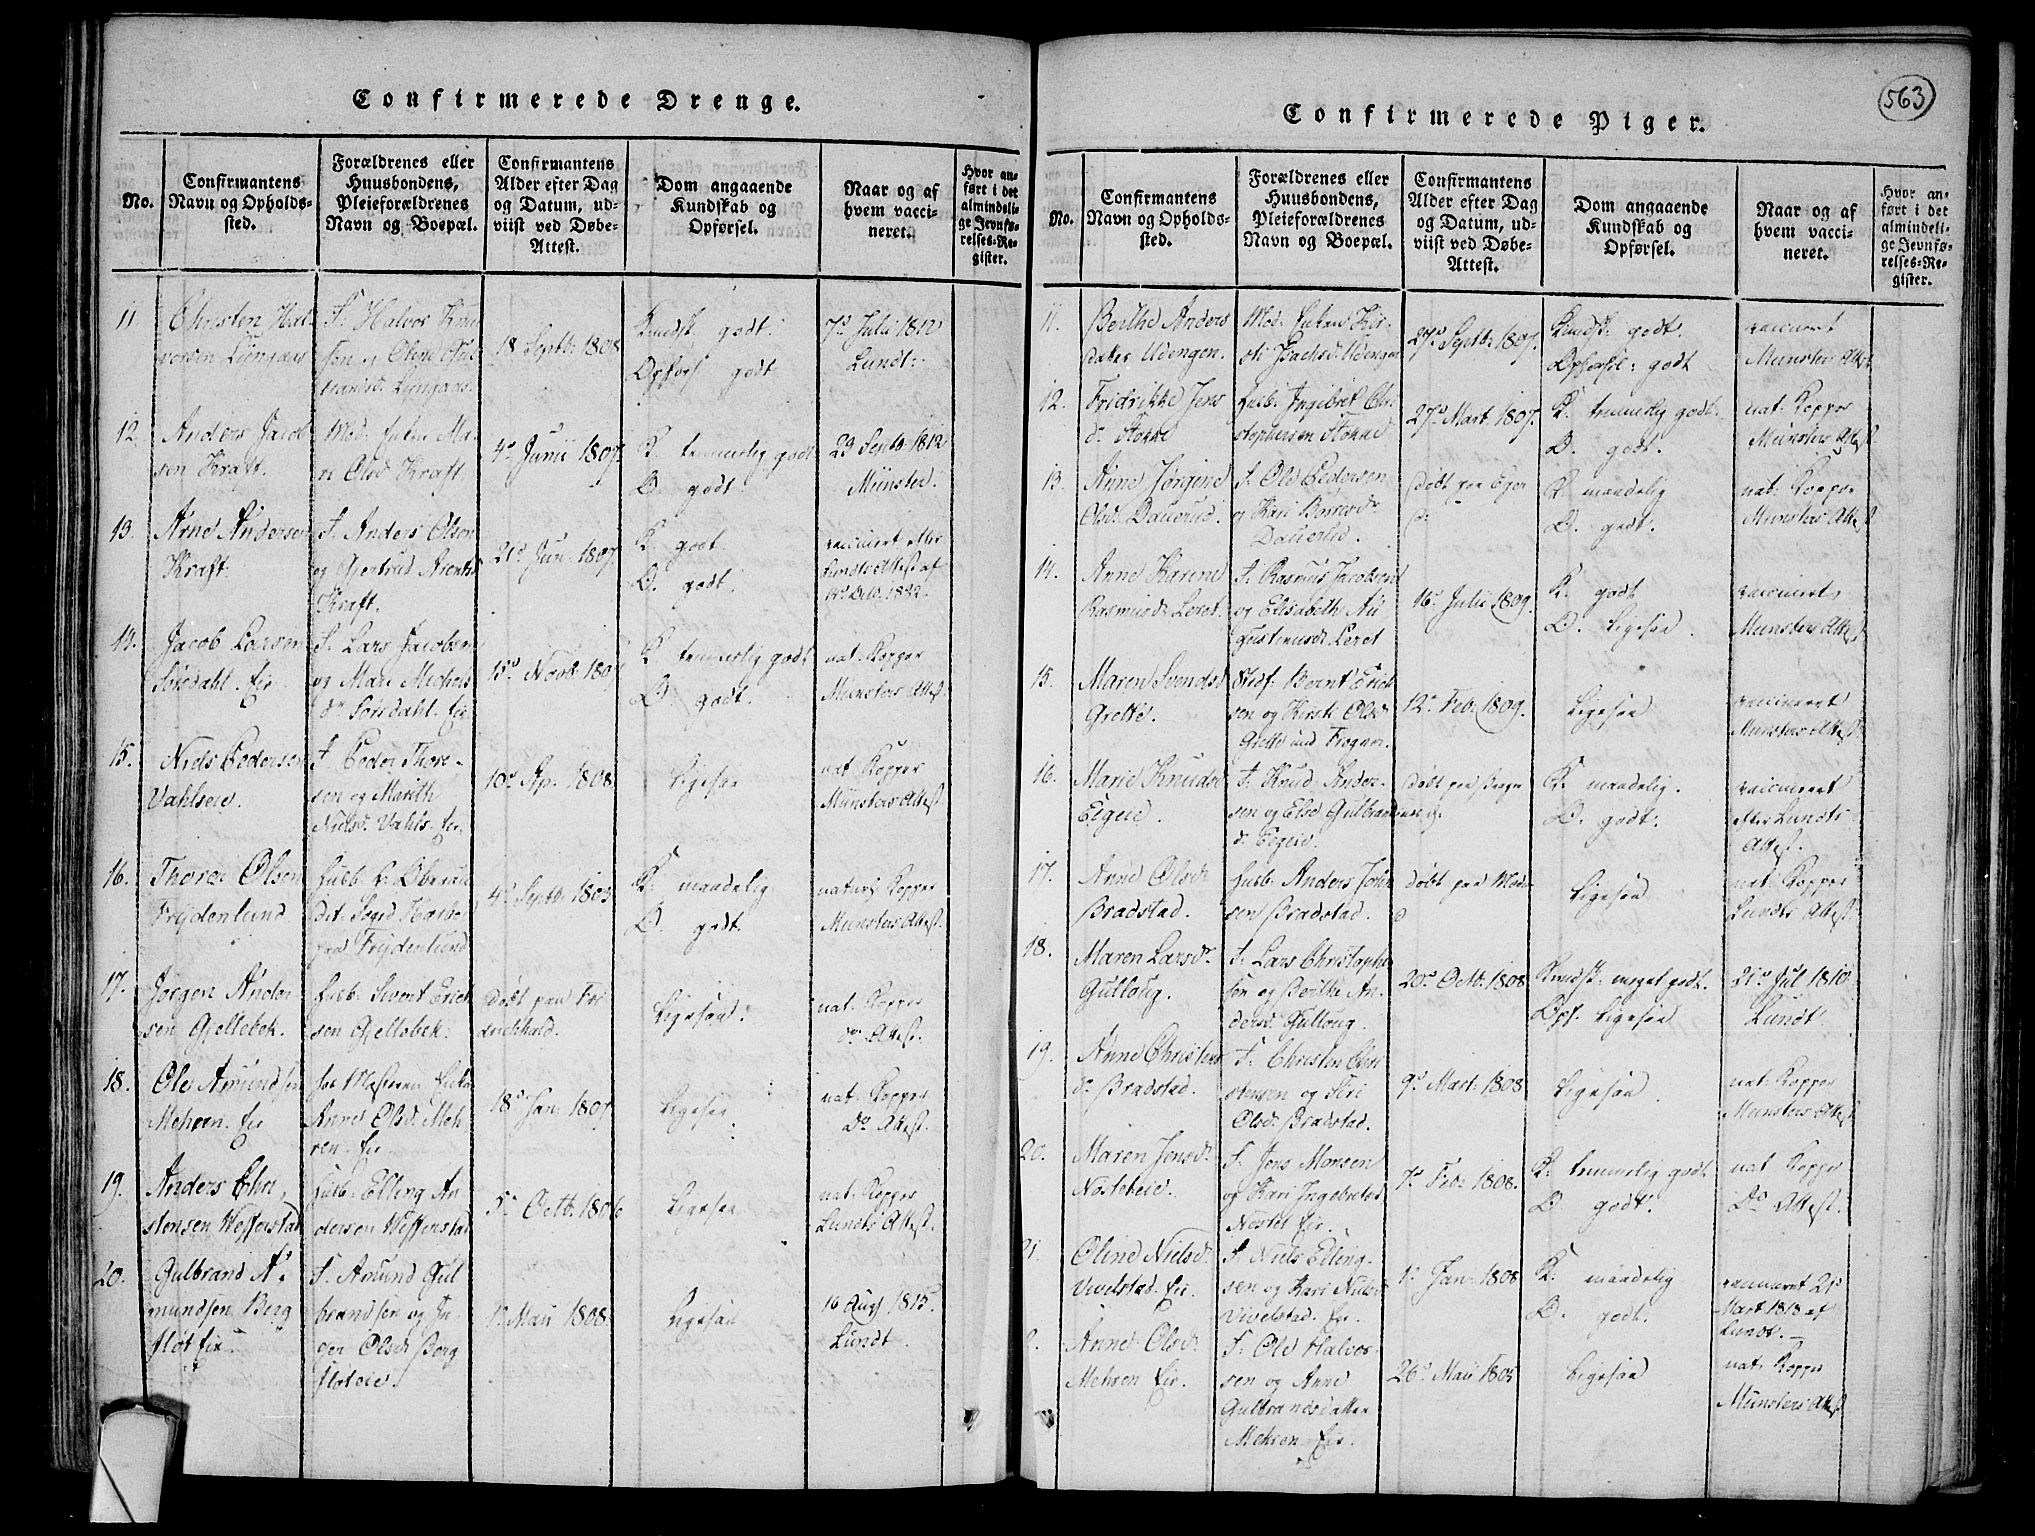 563
Confirmerede Drenge.
No.
Confirmantens
Navn og Opholds-
sted.
Forældrenes eller
Huusbondens,
Pleieforældrenes
Navn og Boepæl.
Confirmantens
Alder efter Dag
og Datum, ud-
viist ved Døbe-
Attest.
Dom angaaende
Kundskab og
Opførsel.
Naar og af
hvem vacci-
neret.
Hvor an-
ført i det
almindeli-
ge Jevnfø-
relses-Re-
gister.
11
Christen Hal-
vorsen
F. Halvor Knu
sen og Oline Gul
brandsd.
18 Septb. 1808
Kundsk. godt.
Opførs godt
7d Julii 1812
Lundt.
12.
Anders Jacob
sen Kraft.
Mod: Enken Ma-
ri Olsd Kraft.
4d Junii 1807.
K. temmelig godt
O. godt.
23 Septb 1812
Münster.
13.
Arne Andersen
Kraft.
F. Anders Olsen
og Gjertrud Arentsd
Kraft.
21d Jun. 1807.
K. godt.
O. godt.
vaccineret efter
Lundts Attest af
1822.
14.
Jacob Larsen
Sørsdahl. Eie
F. Lars Jacobsen
og Mari Michels
dr Sørsdahl. Eie
15d Novb. 1807
K temmelig godt
O. godt.
nat. Kopper
Münsters Attest
15.
Niels Pedersen
Vahlseie.
F. Peder Thore-
sen og Marith
Nielsd. Vahls. Eie.
10d Ap. 1808
Ligesaa
nat Kopper
Münsters Attest
16.
Thorer Olsen
Frydenlund
Husb.
paa Frydenlund
4d Septb. 1803
K. maadelig
O. godt.
naturl. Kopper
Münsters Attest.
17.
Jørgen Ander
sen Gjellebek.
Husb. Svent Erich
sen Gjellebek.
Døbt paa Fri
drichhald.
Ligesaa.
nat. Kopper
do Attest.
18.
Ole Amundsen
Mehren. Eie
hos Enke
Anne Olsd. Meh
ren. Eie
18d Jan. 1807
Ligesaa
nat. Kopper
Do Attest.
19.
Anders Chri
stensen Weffenstad
Husb. Elling An
dersen Weffenstad
5d Octb. 1806
Ligesaa
nat. Kopper
Lundts Attest.
20.
Gulbrand A-
mundsen Berg
fløt Eie.
F. Amund Gul
brandsen og In
ger Olsd Berg
fløteie.
1d Maii 1808
Ligesaa
16 Aug 1815.
Lundt
Confirmerede Piger.
No.
Confirmantens
Navn og Opholds-
sted.
Forældrenes eller
Huusbondens,
Pleieforældrenes
Navn og Boepæl.
Confirmantens
Alder efter Dag
og Datum, ud-
viist ved Døbe-
Attest.
Dom angaaende
Kundskab og
Opførsel.
Naar og af
hvem vacci-
neret.
Hvor an-
ført i det
almindeli-
ge Jevnfø-
relses-Re-
gister.
11.
Berthe Anders
datter Udengen.
Mod: Enken Kir-
sti Udengen
27d Septb. 1807.
Kundsk. godt.
Opførsel: godt
vaccineret
Münsters Attest
12.
Fridrikke Jens
dr Stokke
Husb. Ingebret Chri
stophersen Stokke
27d Mart. 1807.
K. temmelig godt.
O. godt.
nat. Kopper
Münsters Attest.
13.
Anne Jørgine
Olsd. Dauerud.
F. Ole Pedersen
og Kari
Dauerud.
Døbt paa Eger
K. maadelig
O. godt.
nat. Kopper
Münsters Attest
14.
Anne Karine
Rasmusd. Leret.
F. Rasmus Jacobsen
og Elisabeth Au
gustinusd. Leret
16d Julii 1809.
K. godt
O. Ligesaa.
vaccineret,
Münsters Attest
15.
Maren Svendsd
Grette.
Stedf. Bernt Erich
sen og Kirsti Olsd.
Grette und Frogner.
12d Feb. 1809.
Ligesaa
vaccineret
Münsters Attest
16.
Marie Knudsd
Eigeie.
F. Knud Ander-
sen og Else Gulbrands
d. Eigeie.
Døbt paa
K. maadelig.
O. godt.
vaccineret
efter Lundts
Attest.
17.
Anne Olsdr
Bradstad.
Husb. Anders John
sen Bradstad.
Døbt paa Mode
Ligesaa
nat. Kopper
Lundts Attest.
18.
Maren Larsdr.
Gulloug.
F. Lars Christophe
sen og Berthe An
dersd. Gulloug.
20d Octb. 1808
Kundsk. meget godt.
Opf. Ligesaa
21d Jul 1810.
Lundt.
19.
Anne Christens
dr Bradstad.
F. Christen Chri
stensen og Siri
Olsd. Bradstad.
9d Mart. 1808
Ligesaa.
nat. Kopper
Münsters Attest
20.
Maren Jensdr.
Nosteteie.
F. Jens Monsen
og Kari Ingebretsd
Nostet Eie.
7d Feb. 1808.
K. temmelig godt.
O. godt.
nat Kopper
Do Attest.
21.
Oline Nielsdr.
Vivelstad. Eie.
F. Niels Elling-
sen og Kari Nielsd
Vivelstad. Eie.
1d Jan. 1808.
K. maadelig
O. godt.
vaccineret 21d
Mart 1813 af
Lundt.
2.
Anne Olsd.
Mehren Eie.
F. Ole Halvor
sen og Anne
Gulbrandsdatter
Mehren Eie.
26d Maii 1805
Ligesaa
nat. Kopper
Münsters Attest